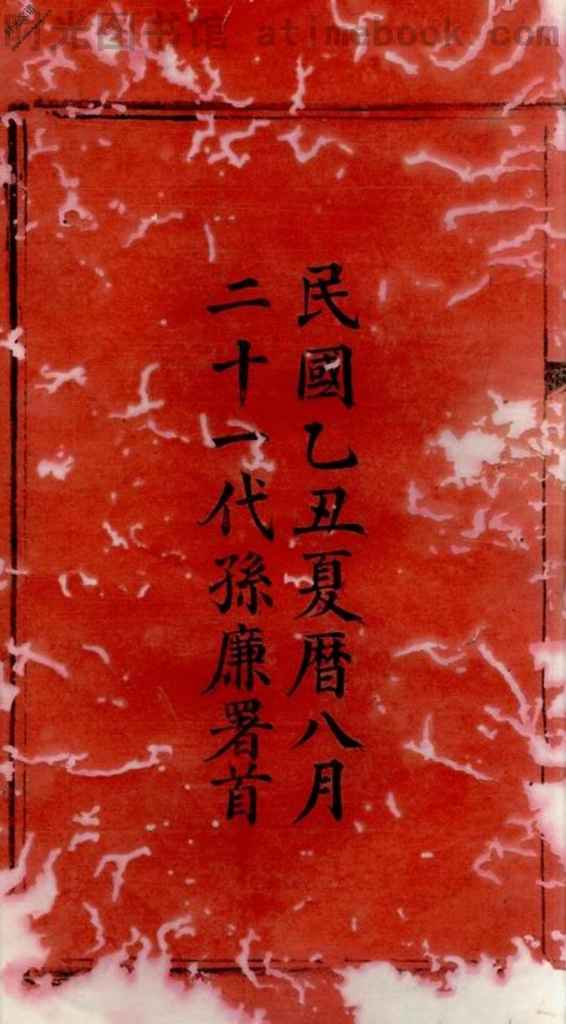 时光图书馆 atimebook.com
民國乙丑夏曆八月
二十一代孫廉署首